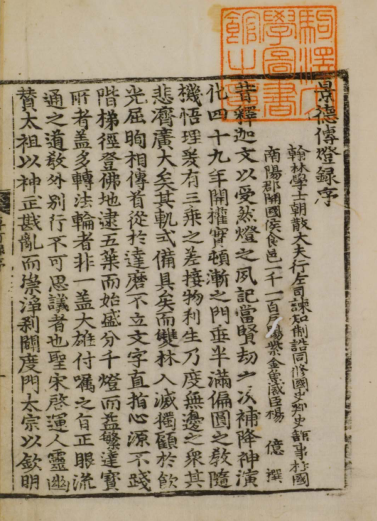 景德傳燈錄序
翰林學士朝散大夫行左司諫知制誥同修國史判史館事柱國
南陽郡開國侯食邑一千一百戶賜紫金魚袋臣楊 億 撰
昔釋迦文以受然燈之夙記當賢劫之次補降神演
化四十九年開權實頓漸之門垂半滿偏圓之敎隨
機悟理爰有三乘之差接物利生乃度無邊之衆其
悲濟廣大矣其軌式備具矣而雙林入滅獨顧於飮
光屈眴相傳首從於達磨不立文字直指心源不踐
階梯徑登佛地逮五葉而始盛分千燈而益繁達寶
所者盖多轉法輪者非一盖大雄付囑之旨正眼流
通之道敎外別行不可思議者也聖宋啓運人靈幽
贊太祖以神武戡亂而崇淨刹闢度門太宗以欽明